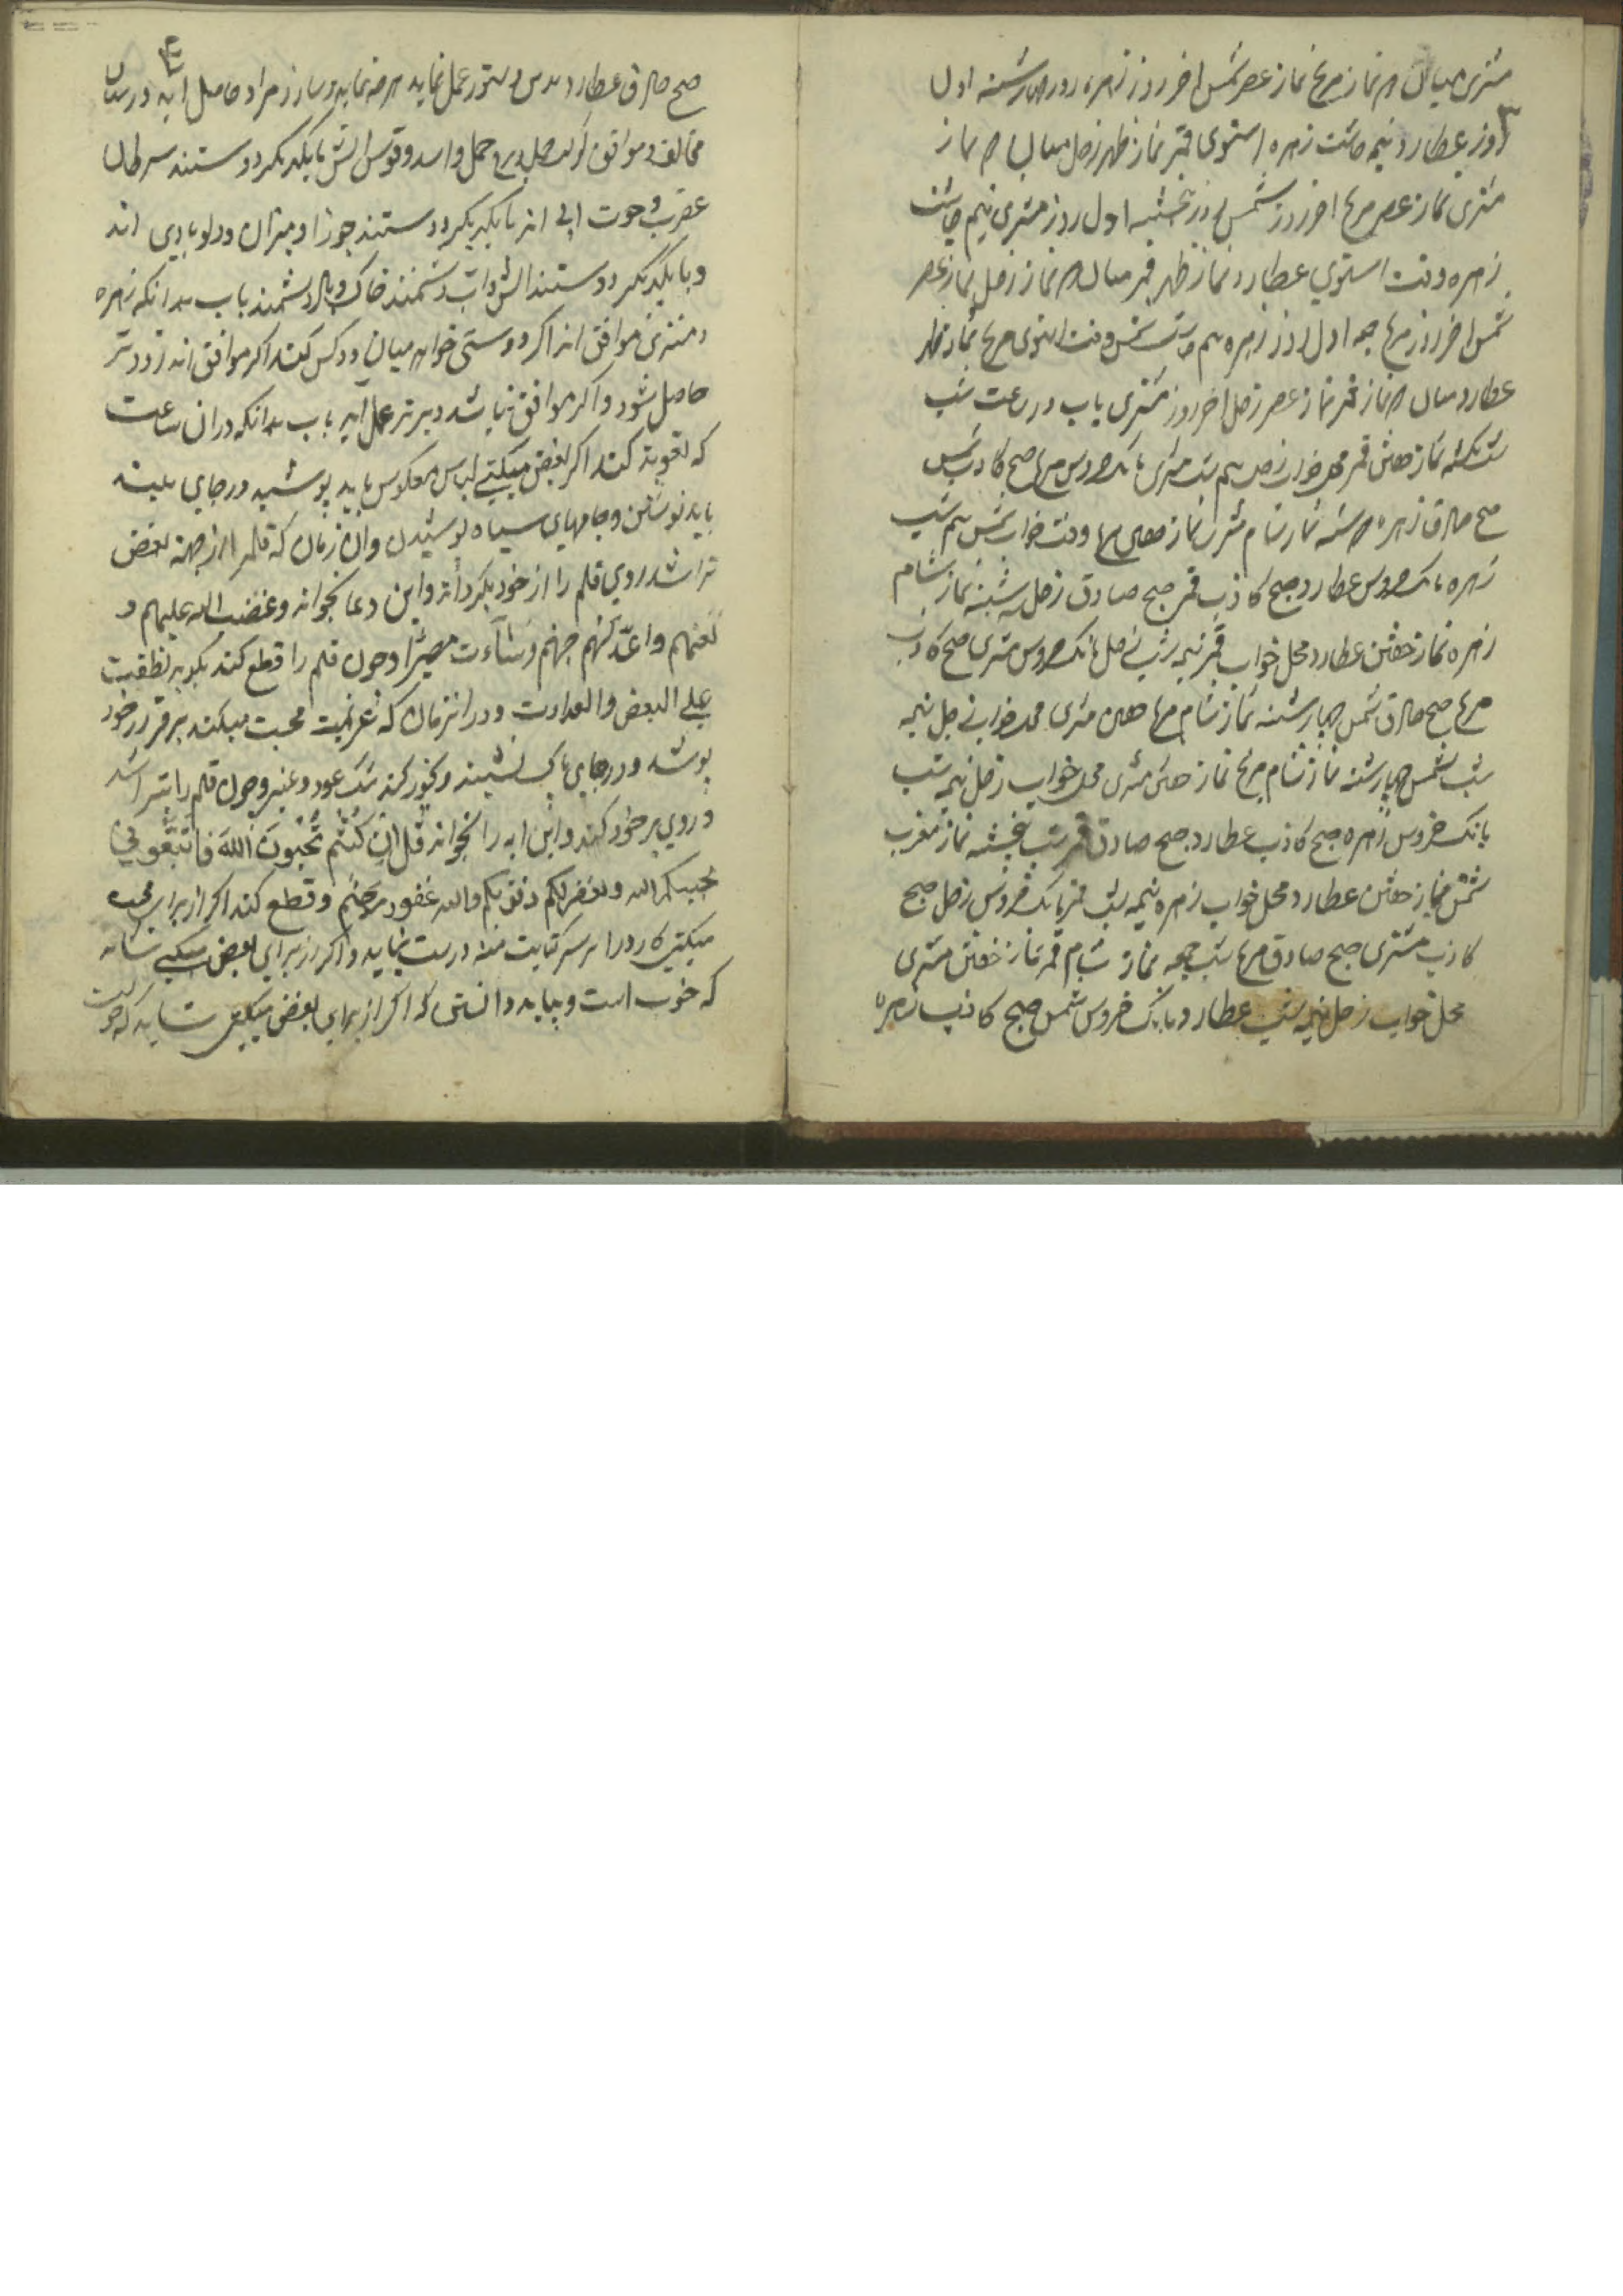 مشتری میان دو نماز مریخ نماز عصر شمس اخر روز زهره روز چهارشنبه اول
۳
روز عطارد نیمه چاشت زهره استوی قمر نماز ظهر زحل میان دو نماز
مشتری نماز عصر مریخ اخر روز شمس روز پنجشنبه اول روز مشتری نیم چاشت
زهره وقت استوی عطارد نماز ظهر قمر میان دو نماز زحل نماز عصر
شمس اخر روز مریخ جمعه اول روز زهره نیم چاشت شمس وقت استوی مریخ نماز ظهر
عطارد میان دو نماز قمر نماز عصر زحل اخر روز مشتری باب در ساعت شب
شب یکشنبه نماز خفتن قمر محل خواب زحل نیم شب مشتری بانک خروس مریخ صبح کاذب شمس
صبح صادق زهره دوشنبه نماز شام مشتری نماز خفتن مریخ وقت خواب شمس نیم شب
زهره بانک خروس عطارد صبح کاذب قمر صبح صادق زحل سه شنبه نماز شام
زهره نماز خفتن عطارد محل خواب قمر نیمه شب زحل بانک خروس مشتری صبح کاذب
مریخ صبح صادق شمس چهارشنبه نماز شام مریخ خفتن مشتری محل خواب زحل نیمه
شب شمس چهارشنبه نماز شام مریخ نماز خفتن مشتری محل خواب زحل نیمه شب
بانک خروس زهره صبح کاذب عطارد صبح صادق قمر شب پنجشنبه نماز مغرب
شمس نماز خفتن عطارد محل خواب زهره نیمه شب قمر بانک خروس زحل صبح
کاذب مشتری صبح صادق مریخ شب جمعه نماز شام قمر نماز خفتن مشتری
محل خواب زحل نیمه شب عطارد و بانک خروس شمس صبح کاذب زهره
۴
صبح صادق عطارد بدین دستور عمل نماید هر چه نماید و سازد مراد حاصل اید در بیان
مخالف و موافق حمل و اسد و قوس اتش با یکدیکر دوستند سرطان
عقرب و حوت ابی اند با یکدیکر دوستند جوزا و میزان و دلو بادی اند
و با یکدیکر دوستند اتش و اب دشمنند خاک و باد دشمند باب بدانکه زهره
و مشتری موافق اند اکر دوستی خواهد میان دو کس کند اکر موافق اند زودتر
حاصل شود و اکر موافق نباشد دیرتر عمل اید باب بدانکه در ان ساعت
که تعوید کند اکر بغض میکنی لباس معکوس باید پوشید و در جای بلند
باید نوشتن و جامهای سیاه پوشیدن و ان زمان که قلم از جهة بغض
تراشد روی قلم را از خود بکرداند و این دعا بخواند و غضب الله علیهم و
لعنهم و اعدّ لهم جهنم وَسٰآءَت مصیرًا و چون قلم را قطع کند بکوید
علی البغض و العداوت و در انزمان که عزیمت محبت میکند
پوشد و در جای پاک نشیند و بخور کند مشک عود و عنبر و چون قلم را تراشد
و روی بر خود کند و این ایه را بخواند قُل اِن کُنتُم تُحِبّونَ اللهَ فَاتَّبَعونی
یحببکم الله و یغفر لکم ذنوبکم والله غفور رحیم و قطع کند اکر از برای محبت
میکنی کارد را بر سر درست نماید و اکر از برای بغض میکنی
که خوب است و بباید دانستن که اکر از برای بغض میکنی شاید که